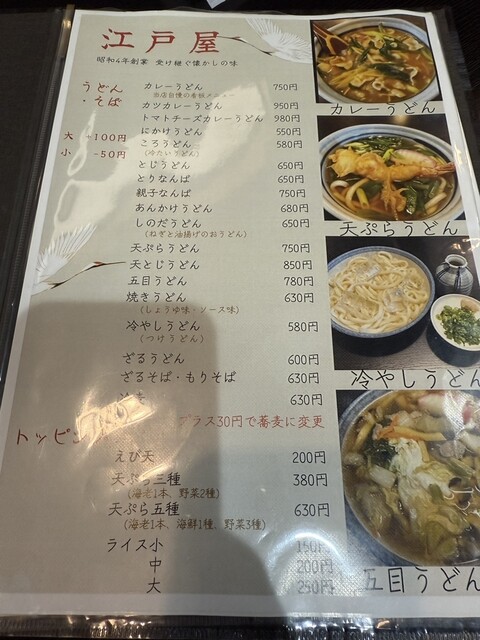 江戸屋
昭和4年創業 受け継ぐ懐かしの味
うどん
・そば
大 +100円
小 -50円
カレーうどん 750円
当店自慢の看板メニュー
カツカレーうどん 950円
トマトチーズカレーうどん 980円
にかけうどん 550円
ころうどん 580円
(冷たいうどん)
とじうどん 650円
とりなんば 650円
親子なんば 750円
あんかけうどん 680円
しのだうどん 650円
(ねぎと油揚げのおうどん)
天ぷらうどん 750円
天とじうどん 850円
五目うどん 780円
焼きうどん 630円
(しょうゆ味・ソース味)
冷やしうどん 580円
(つけうどん)
ざるうどん 600円
ざるそば・もりそば 630円
630円
プラス30円で蕎麦に変更
トッピン
えび天 200円
天ぷら三種 380円
(海老1本、野菜2種)
天ぷら五種 630円
(海老1本、海鮮1種、野菜3種)
ライス小 150円
中 200円
大 250円
カレーうどん
天ぷらうどん
冷やしうどん
五目うどん